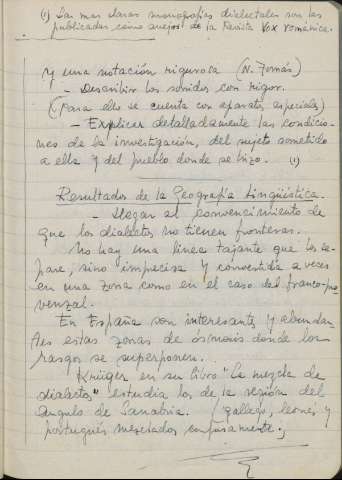 (1) Las mas claras monografías dialectales son las
publicadas como anejos de la Revista Vox románica.
y una notación rigurosa (N. Tomás)
- Describir los sonidos con rigor.
(Para ello se cuenta con aparatos especiales)
- Explicar detalladamente las condicio-
nes de la investigación, del sujeto sometido
a ella y del pueblo donde se hizo. (1)
Resultados de la Geografía Lingüística.
- Llegar al convencimiento de
que los dialectos no tienen fronteras.
No hay una línea tajante que los se-
pare, sino imprecisa y convertida a veces
en una zona como en el caso del franco-pro-
venzal.
En España son interesantes y abundan-
tes estas zonas de ósmosis donde los
rasgos se superponen.
Krüger en su libro "La mezcla de
dialectos" estudia los de la región del
ángulo de Sanabria. (gallego, leonés y
portugués mezclados confusamente.)